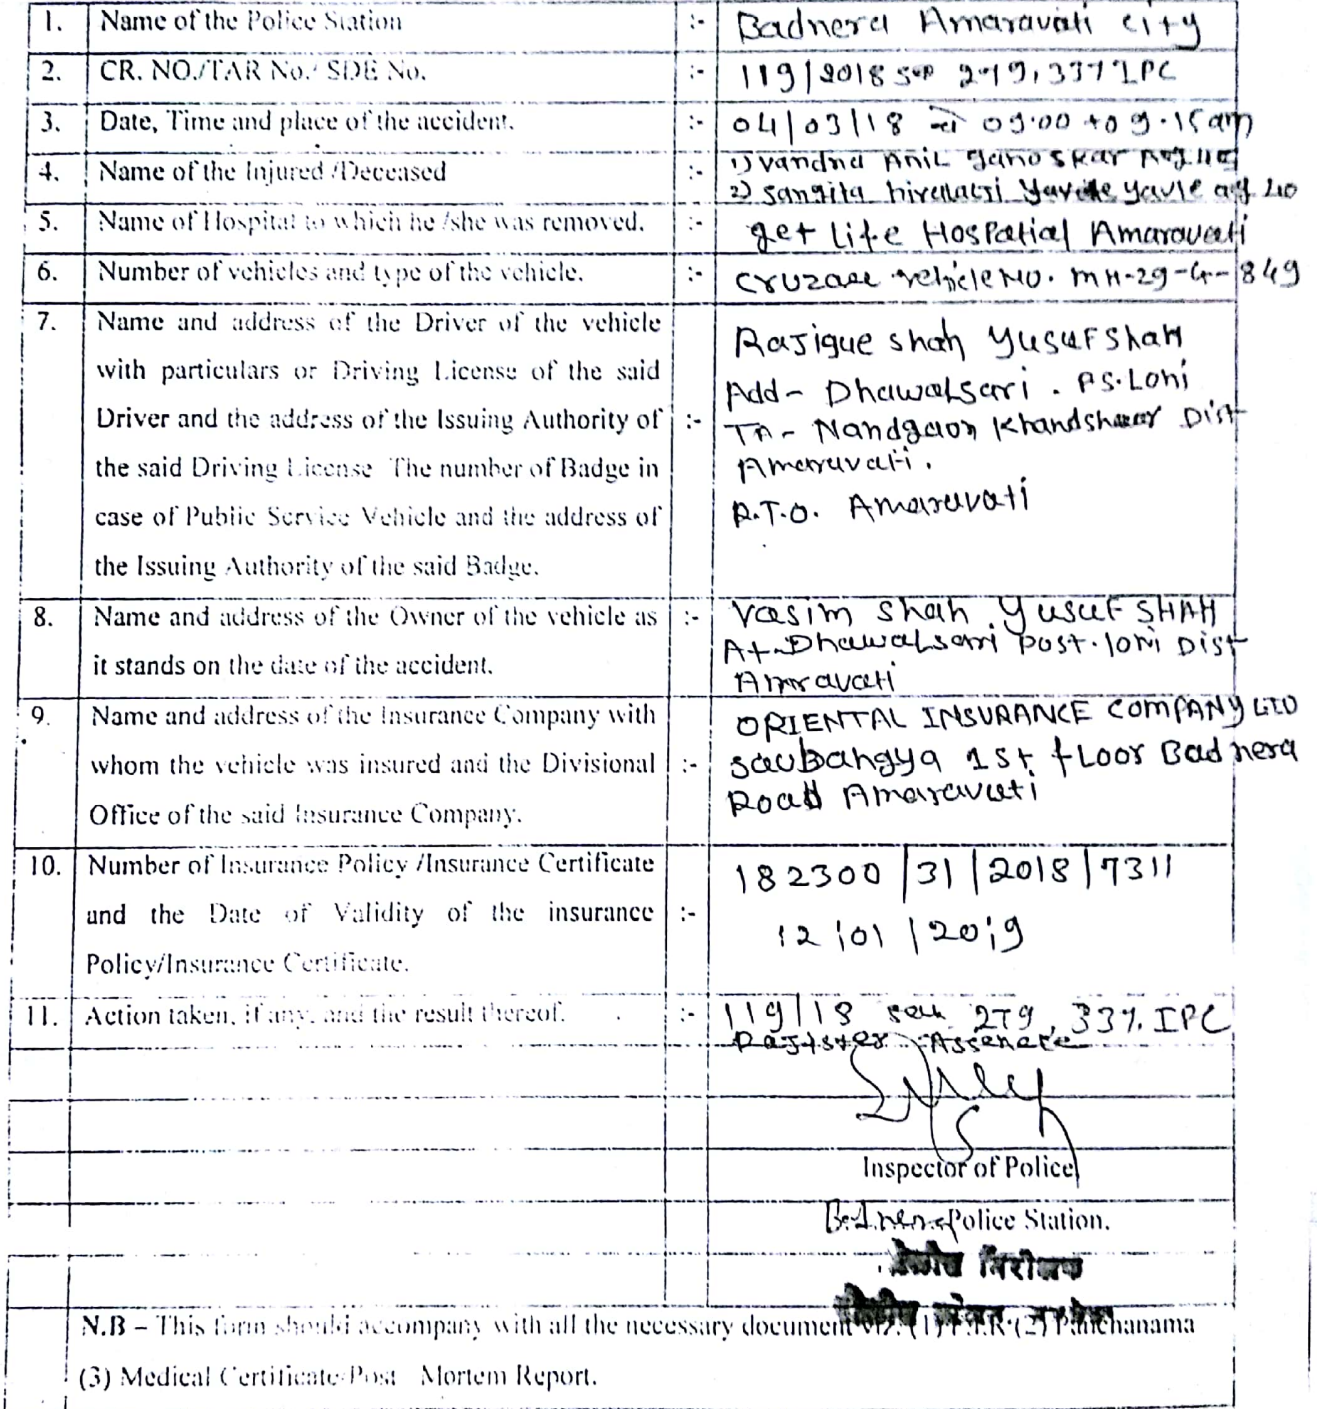 1. Name of the Police Station :- Badnera Amaravati city
2. CR. NO./TAR No./ SDE No. :- 119/2018 279, 337 IPC
3. Date, Time and place of the accident. :- 04/03/18 09.00 to 9.15 am
4. Name of the Injured /Deceased :- 1) Vandna Anil
2) Sangita yavle
5. Name of Hospital to which he /she was removed. :- get Life Hospatial Amaravati
6. Number of vehicles and type of the vehicle. :- vehicle NO. MH-29-4-849
7. Name and address of the Driver of the vehicle
with particulars or Driving License of the said
Driver and the address of the Issuing Authority of :-
the said Driving License The number of Badge in
case of Public Service Vehicle and the address of
the Issuing Authority of the said Badge.
Rajique shah YUSUF SHAH
Add - Dhawalsari . PS. Loni
TA - Nandgaon Dist
Amaravati.
R.T.O. Amaravati
8. Name and address of the Owner of the vehicle as :-
it stands on the date of the accident.
Vasim Shah Yusuf SHAH
At - Dhawalsari post. loni Dist
Amravati
9. Name and address of the Insurance Company with
whom the vehicle was insured and the Divisional :-
Office of the said Insurance Company.
ORIENTAL INSURANCE COMPANY LTD
saubahgya 1st floor Badnera
Road Amaravati
10. Number of Insurance Policy /Insurance Certificate
and the Date of Validity of the insurance :-
Policy/Insurance Certificate.
182300 /31/2018/7311
12/01/2019
11. Action taken, if any, and the result thereof. :- 119/18 279, 337. IPC
Inspector of Police
Badnera Police Station.
निरीक्षक
N.B – This form should accompany with all the necessary document viz. (1) F.I.R (2) Panchanama
(3) Medical Certificate Post Mortem Report.